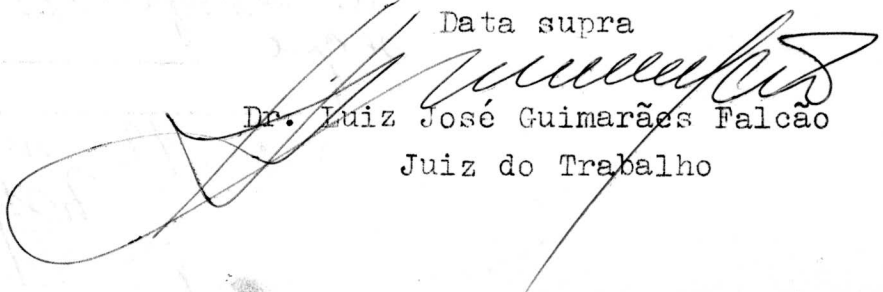 Data supra
Dr. Luiz José Guimarães Falcão
Juiz do Trabalho